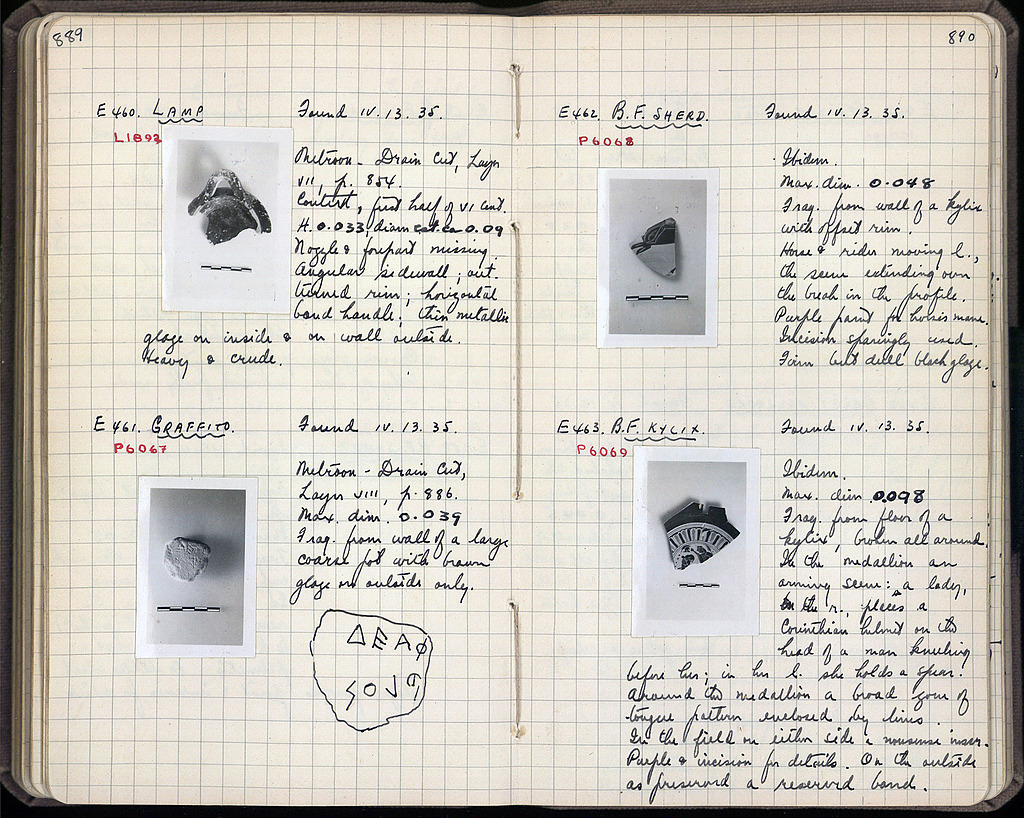 889
E 460. LAMP
Found IV. 13. 35.
L1893
Metroon - Drain Cut, Layer
VII, p. 854.
Context, first half of VI cent.
H. 0.033, diam est. ca 0.09
Nozzle & forepart missing.
Angular sidewall; out
turned rim; horizontal
band handle; thin metallic
glaze on inside & on wall outside.
Heavy & crude.
E 461. GRAFFITO.
Found IV. 13. 35.
P6067
Metroon - Drain Cut,
Layer VIII, p. 886.
Max. dim. 0.039
Frag. from wall of a large
coarse pot with brown
glaze on outside only.
ΔΕΑΦ
890
E 462. B.F. SHERD.
Found IV. 13. 35.
P6068
Ibidem.
Max. dim. 0.048
Frag. from wall of a kylix
with offset rim.
Horse & rider moving l.,
the scene extending over
the break in the profile.
Purple paint for horse's mane.
Incision sparingly used.
Firm but dull black glaze.
E 463. B.F. KYLIX.
Found IV. 13. 35.
P6069
Ibidem.
Max. dim 0.098
Frag. from floor of a
kylix, broken all around.
In the medallion an
arming scene: a lady,
on the r., places a
Corinthian helmet on the
head of a man kneeling
before her; in her l. she holds a spear.
Around the medallion a broad zone of
tongue pattern enclosed by lines.
In the field on either side a nonsense inscr.
Purple & incision for details. On the outside
as preserved a reserved band.